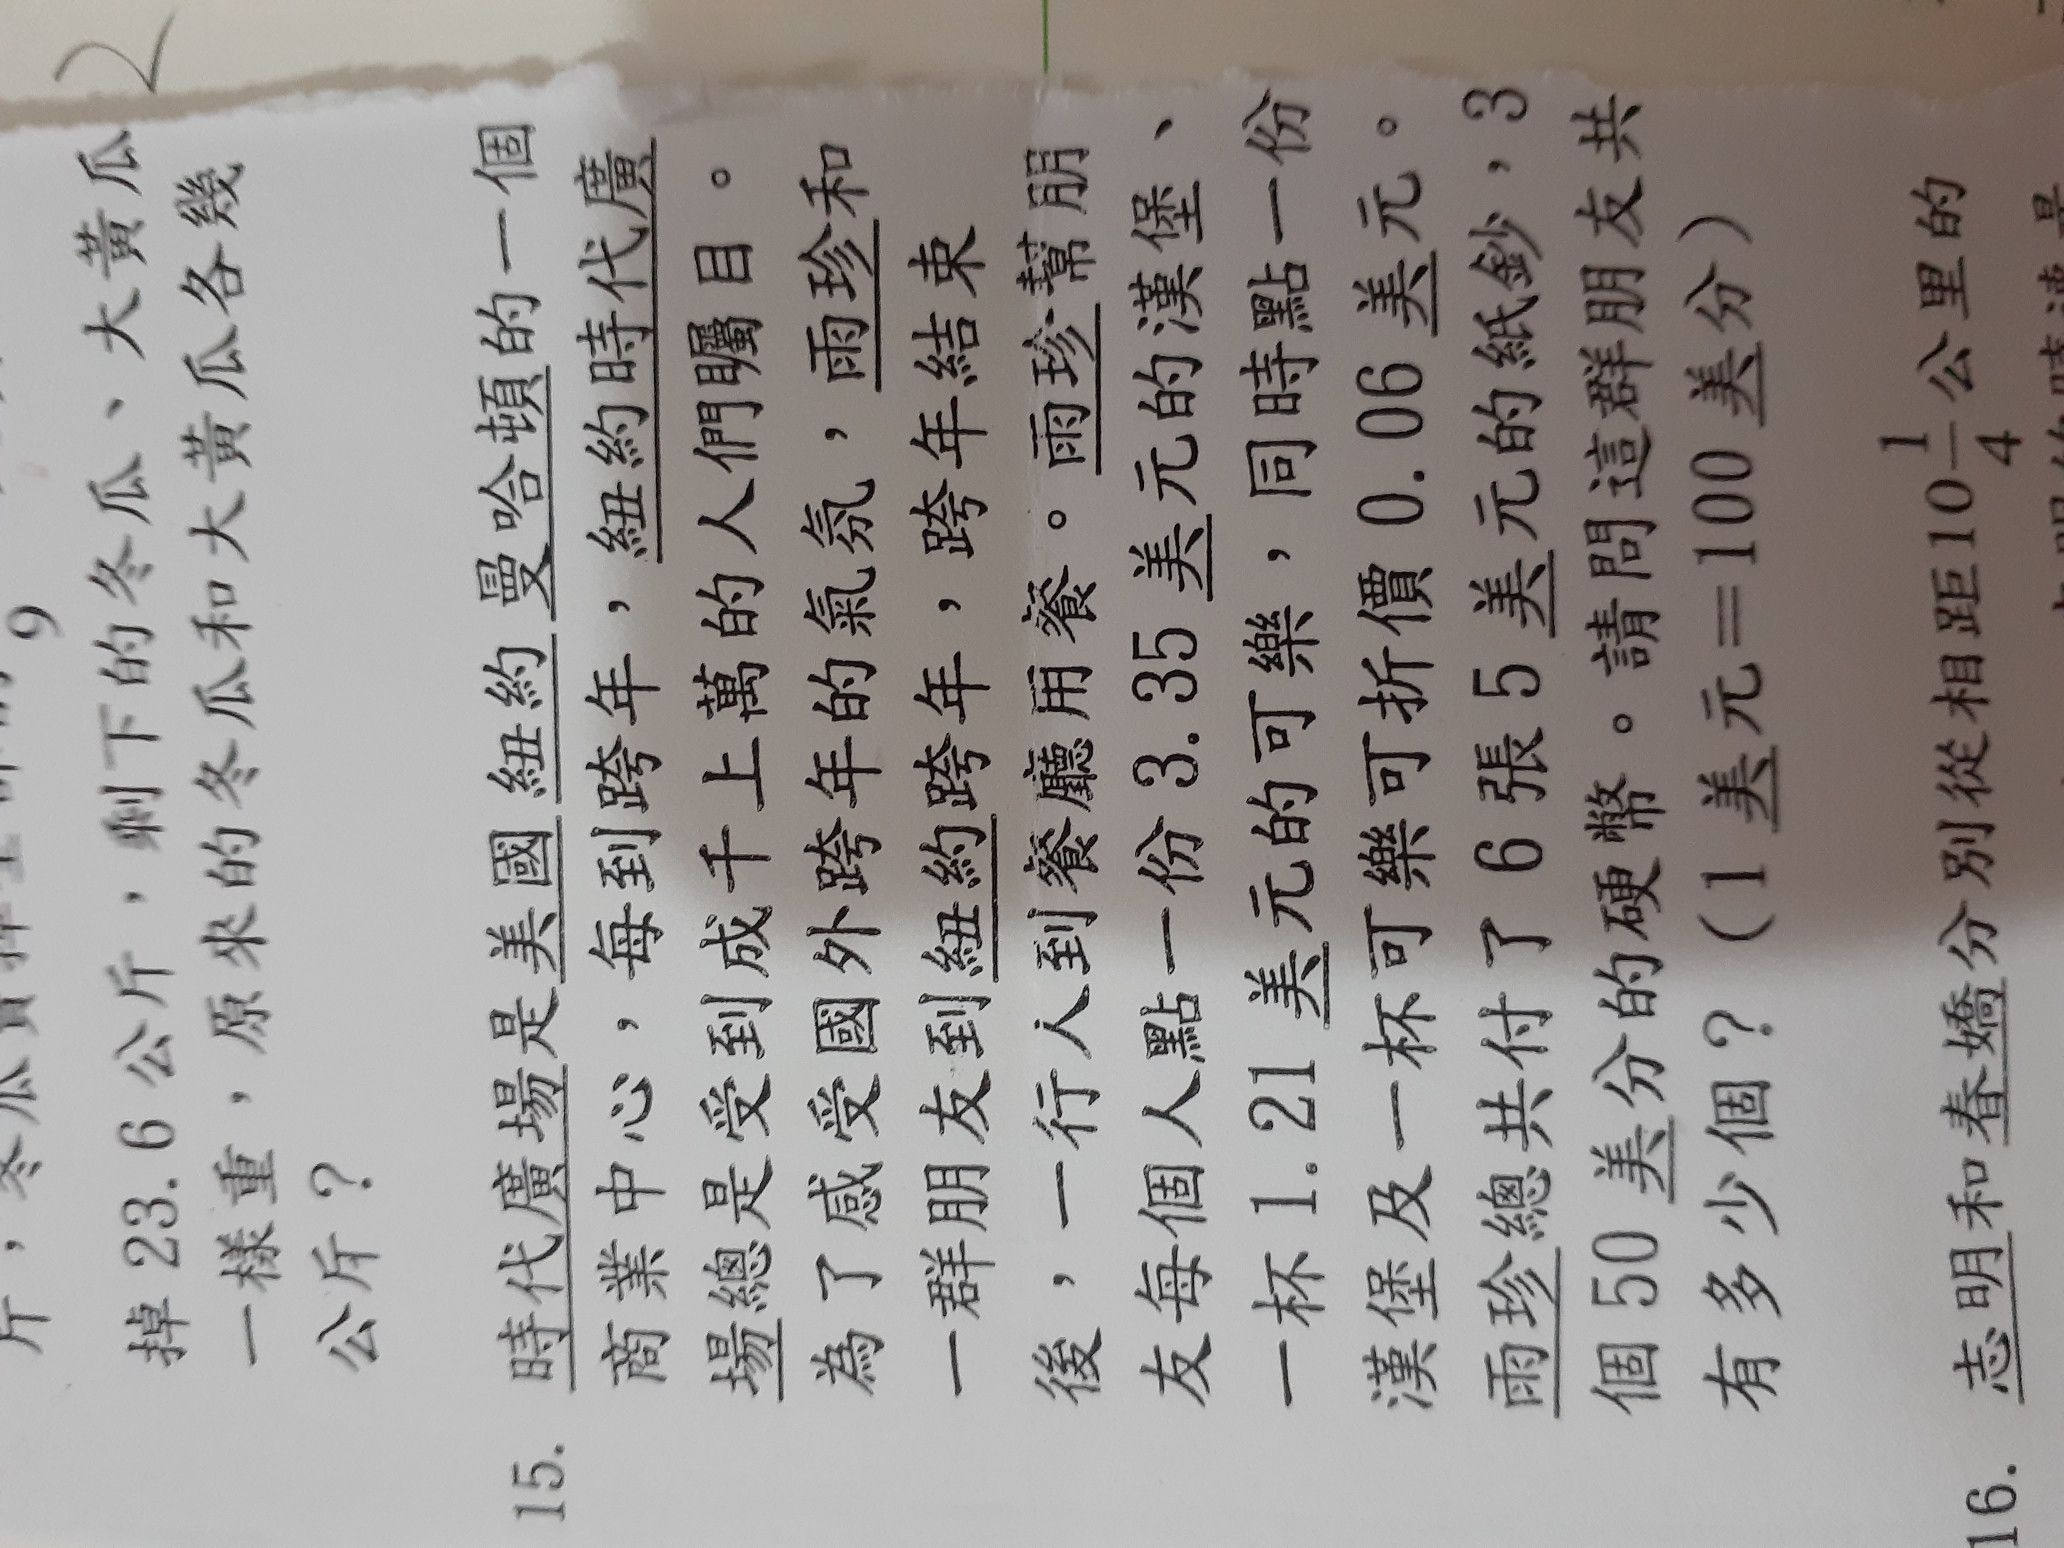 2
9
掉 23.6 公斤，剩下的冬瓜、大黃瓜
一樣重，原來的冬瓜和大黃瓜各幾
公斤？
15. 時代廣場是美國紐約曼哈頓的一個
商業中心，每到跨年，紐約時代廣
場總是受到成千上萬的人們矚目。
為了感受國外跨年的氣氛，雨珍和
一群朋友到紐約跨年，跨年結束
後，一行人到餐廳用餐。雨珍幫朋
友每個人點一份 3.35 美元的漢堡、
一杯 1.21 美元的可樂，同時點一份
漢堡及一杯可樂可折價 0.06 美元。
雨珍總共付了 6 張 5 美元的紙鈔，3
個 50 美分的硬幣。請問這群朋友共
有多少個？（1 美元=100 美分）
16. 志明和春嬌分別從相距10 1/4 公里的